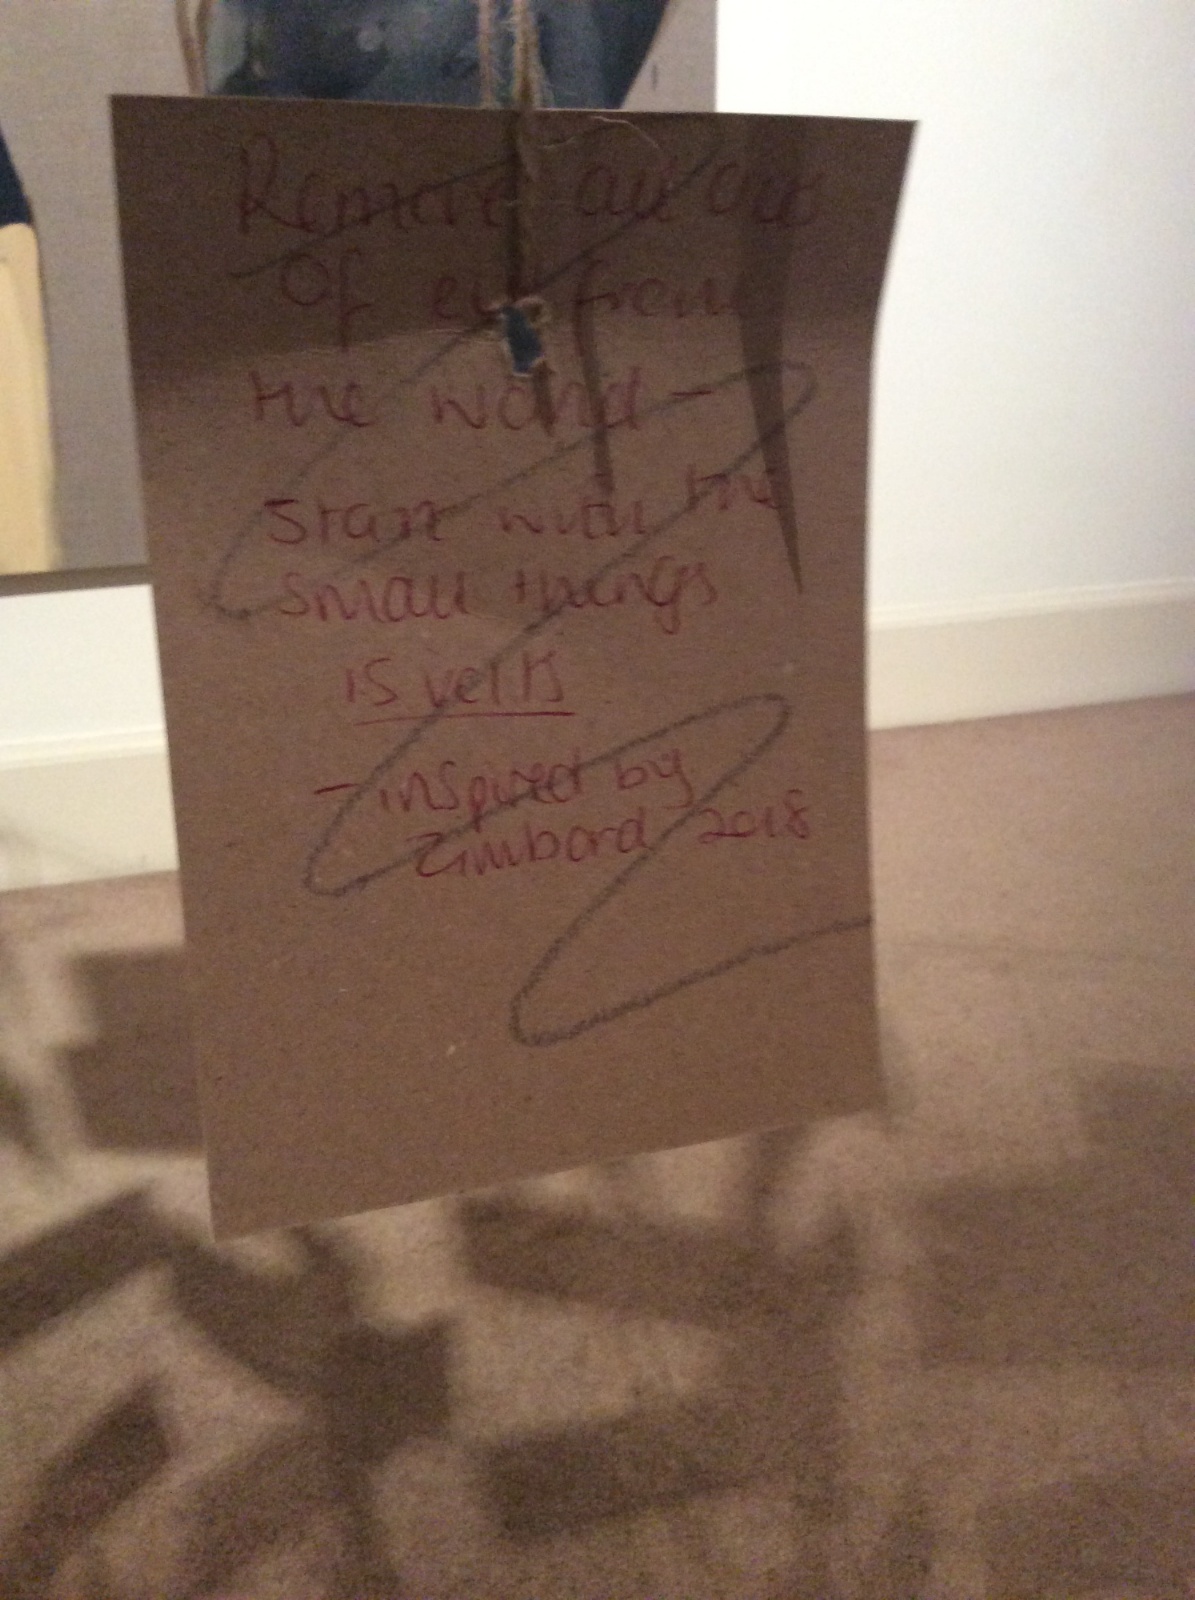 Remove all
of evil from
the world -
Start with the
small things
- inspired by
Zimbardo 2018